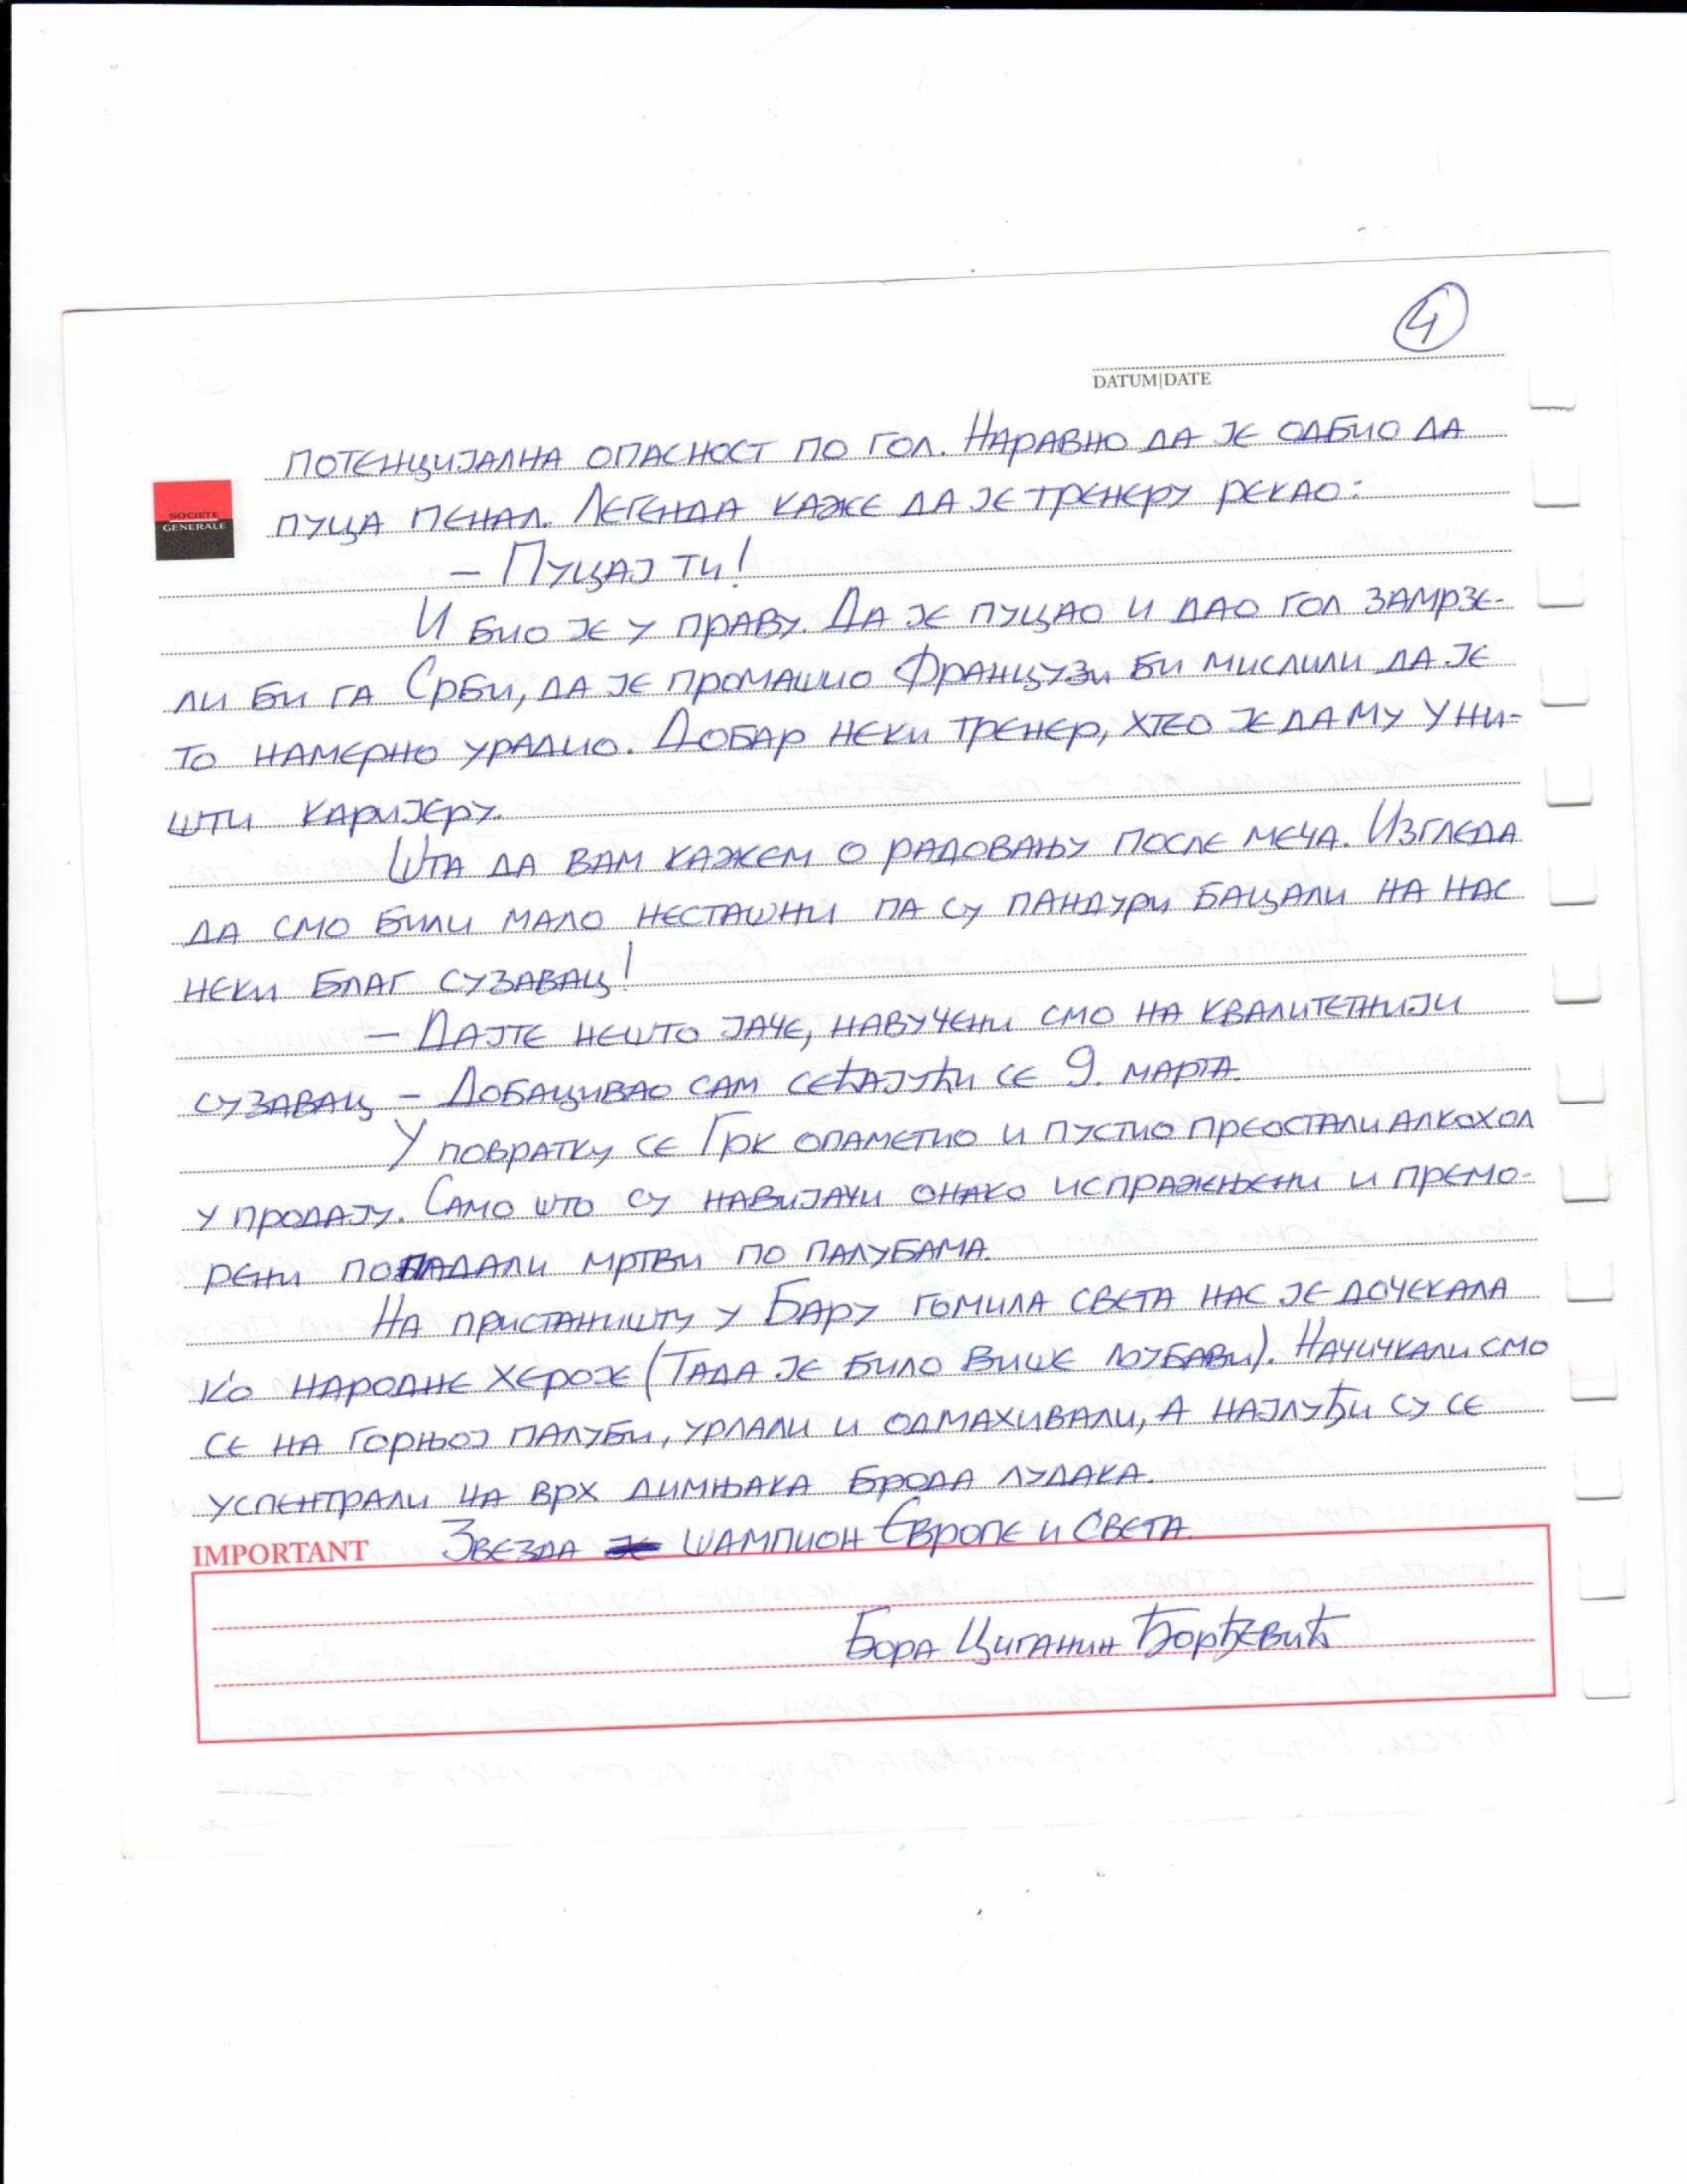 4
DATUM|DATE
SOCIETE
GENERALE
ПОТЕНЦИЈАЛНА ОПАСНОСТ ПО ГОЛ. НАРАВНО ДА ЈЕ ОДБИО ДА
ПУЦА ПЕНАЛ. ЛЕГЕНДА КАЖЕ ДА ЈЕ ТРЕНЕРУ РЕКАО:
– ПУЦАЈ ТИ!
И БИО ЈЕ У ПРАВУ. ДА ЈЕ ПУЦАО И ДАО ГОЛ ЗАМРЗЕ-
ЛИ БИ ГА СРБИ, ДА ЈЕ ПРОМАШИО ФРАНЦУЗИ БИ МИСЛИЛИ ДА ЈЕ
ТО НАМЕРНО УРАДИО. ДОБАР НЕКИ ТРЕНЕР, ХТЕО ЈЕ ДА МУ УНИ-
ШТИ КАРИЈЕРУ.
ШТА ДА ВАМ КАЖЕМ О РАДОВАЊУ ПОСЛЕ МЕЧА. ИЗГЛЕДА
ДА СМО БИЛИ МАЛО НЕСТАШНИ ПА СУ ПАНДУРИ БАЦАЛИ НА НАС
НЕКИ БЛАГ СУЗАВАЦ!
– ДАЈТЕ НЕШТО ЈАЧЕ, НАВУЧЕНИ СМО НА КВАЛИТЕТНИЈИ
СУЗАВАЦ – ДОБАЦИВАО САМ СЕЋАЈУЋИ СЕ 9. МАРТА.
У ПОВРАТКУ СЕ ГРК ОПАМЕТИО И ПУСТИО ПРЕОСТАЛИ АЛКОХОЛ
У ПРОДАЈУ. САМО ШТО СУ НАВИЈАЧИ ОНАКО ИСПРАЖЊЕНИ И ПРЕМО-
РЕНИ ПОПАДАЛИ МРТВИ ПО ПАЛУБАМА.
НА ПРИСТАНИШТУ У БАРУ ГОМИЛА СВЕТА НАС ЈЕ ДОЧЕКАЛА
К'О НАРОДНЕ ХЕРОЈЕ (ТАДА ЈЕ БИЛО ВИШЕ ЉУБАВИ). НАЧИЧКАЛИ СМО
СЕ НА ГОРЊОЈ ПАЛУБИ, УРЛАЛИ И ОДМАХИВАЛИ, А НАЈЛУЂИ СУ СЕ
УСПЕНТРАЛИ НА ВРХ ДИМЊАКА БРОДА ЛУДАКА.
IMPORTANT ЗВЕЗДА ШАМПИОН ЕВРОПЕ И СВЕТА.
БОРА ЦИГАНИН ЂОРЂЕВИЋ